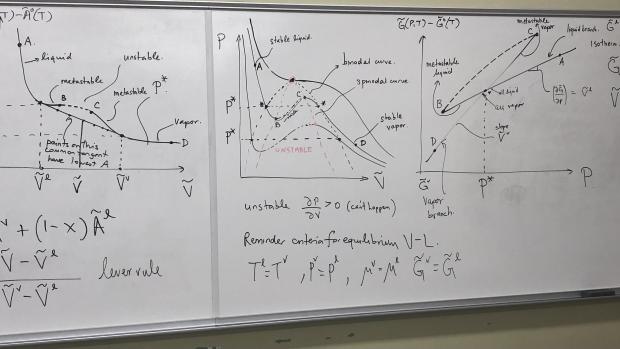 T)-Ã°(T)
A.
liquid
unstable.
metastable
metastable
P*
B
C
vapor.
D
points on this
common tangent
have lowest A
Ṽˡ Ṽ Ṽᵛ Ṽ
ᵛ + (1-x) Ãˡ
Ṽ - Ṽˡ
Ṽᵛ - Ṽˡ
lever rule
P
stable liquid.
A
binodal curve
spinodal curve
C
P*
B
P*
stable
vapor.
D
UNSTABLE
Ṽ
unstable ∂P/∂V > 0 (can't happen)
Reminder criteria for equilibrium V-L.
Tˡ=Tᵛ , Pᵛ=Pˡ , μᵛ=μˡ G̃ᵛ=G̃ˡ
G̃(P,T) - G̃°(T)
metastable
vapor
C
liquid branch.
G̃
Isotherm
A
metastable
liquid
B
= Ṽˡ
D
slope
Ṽᵛ
G̃ᵛ
P*
P
Vapor
branch.